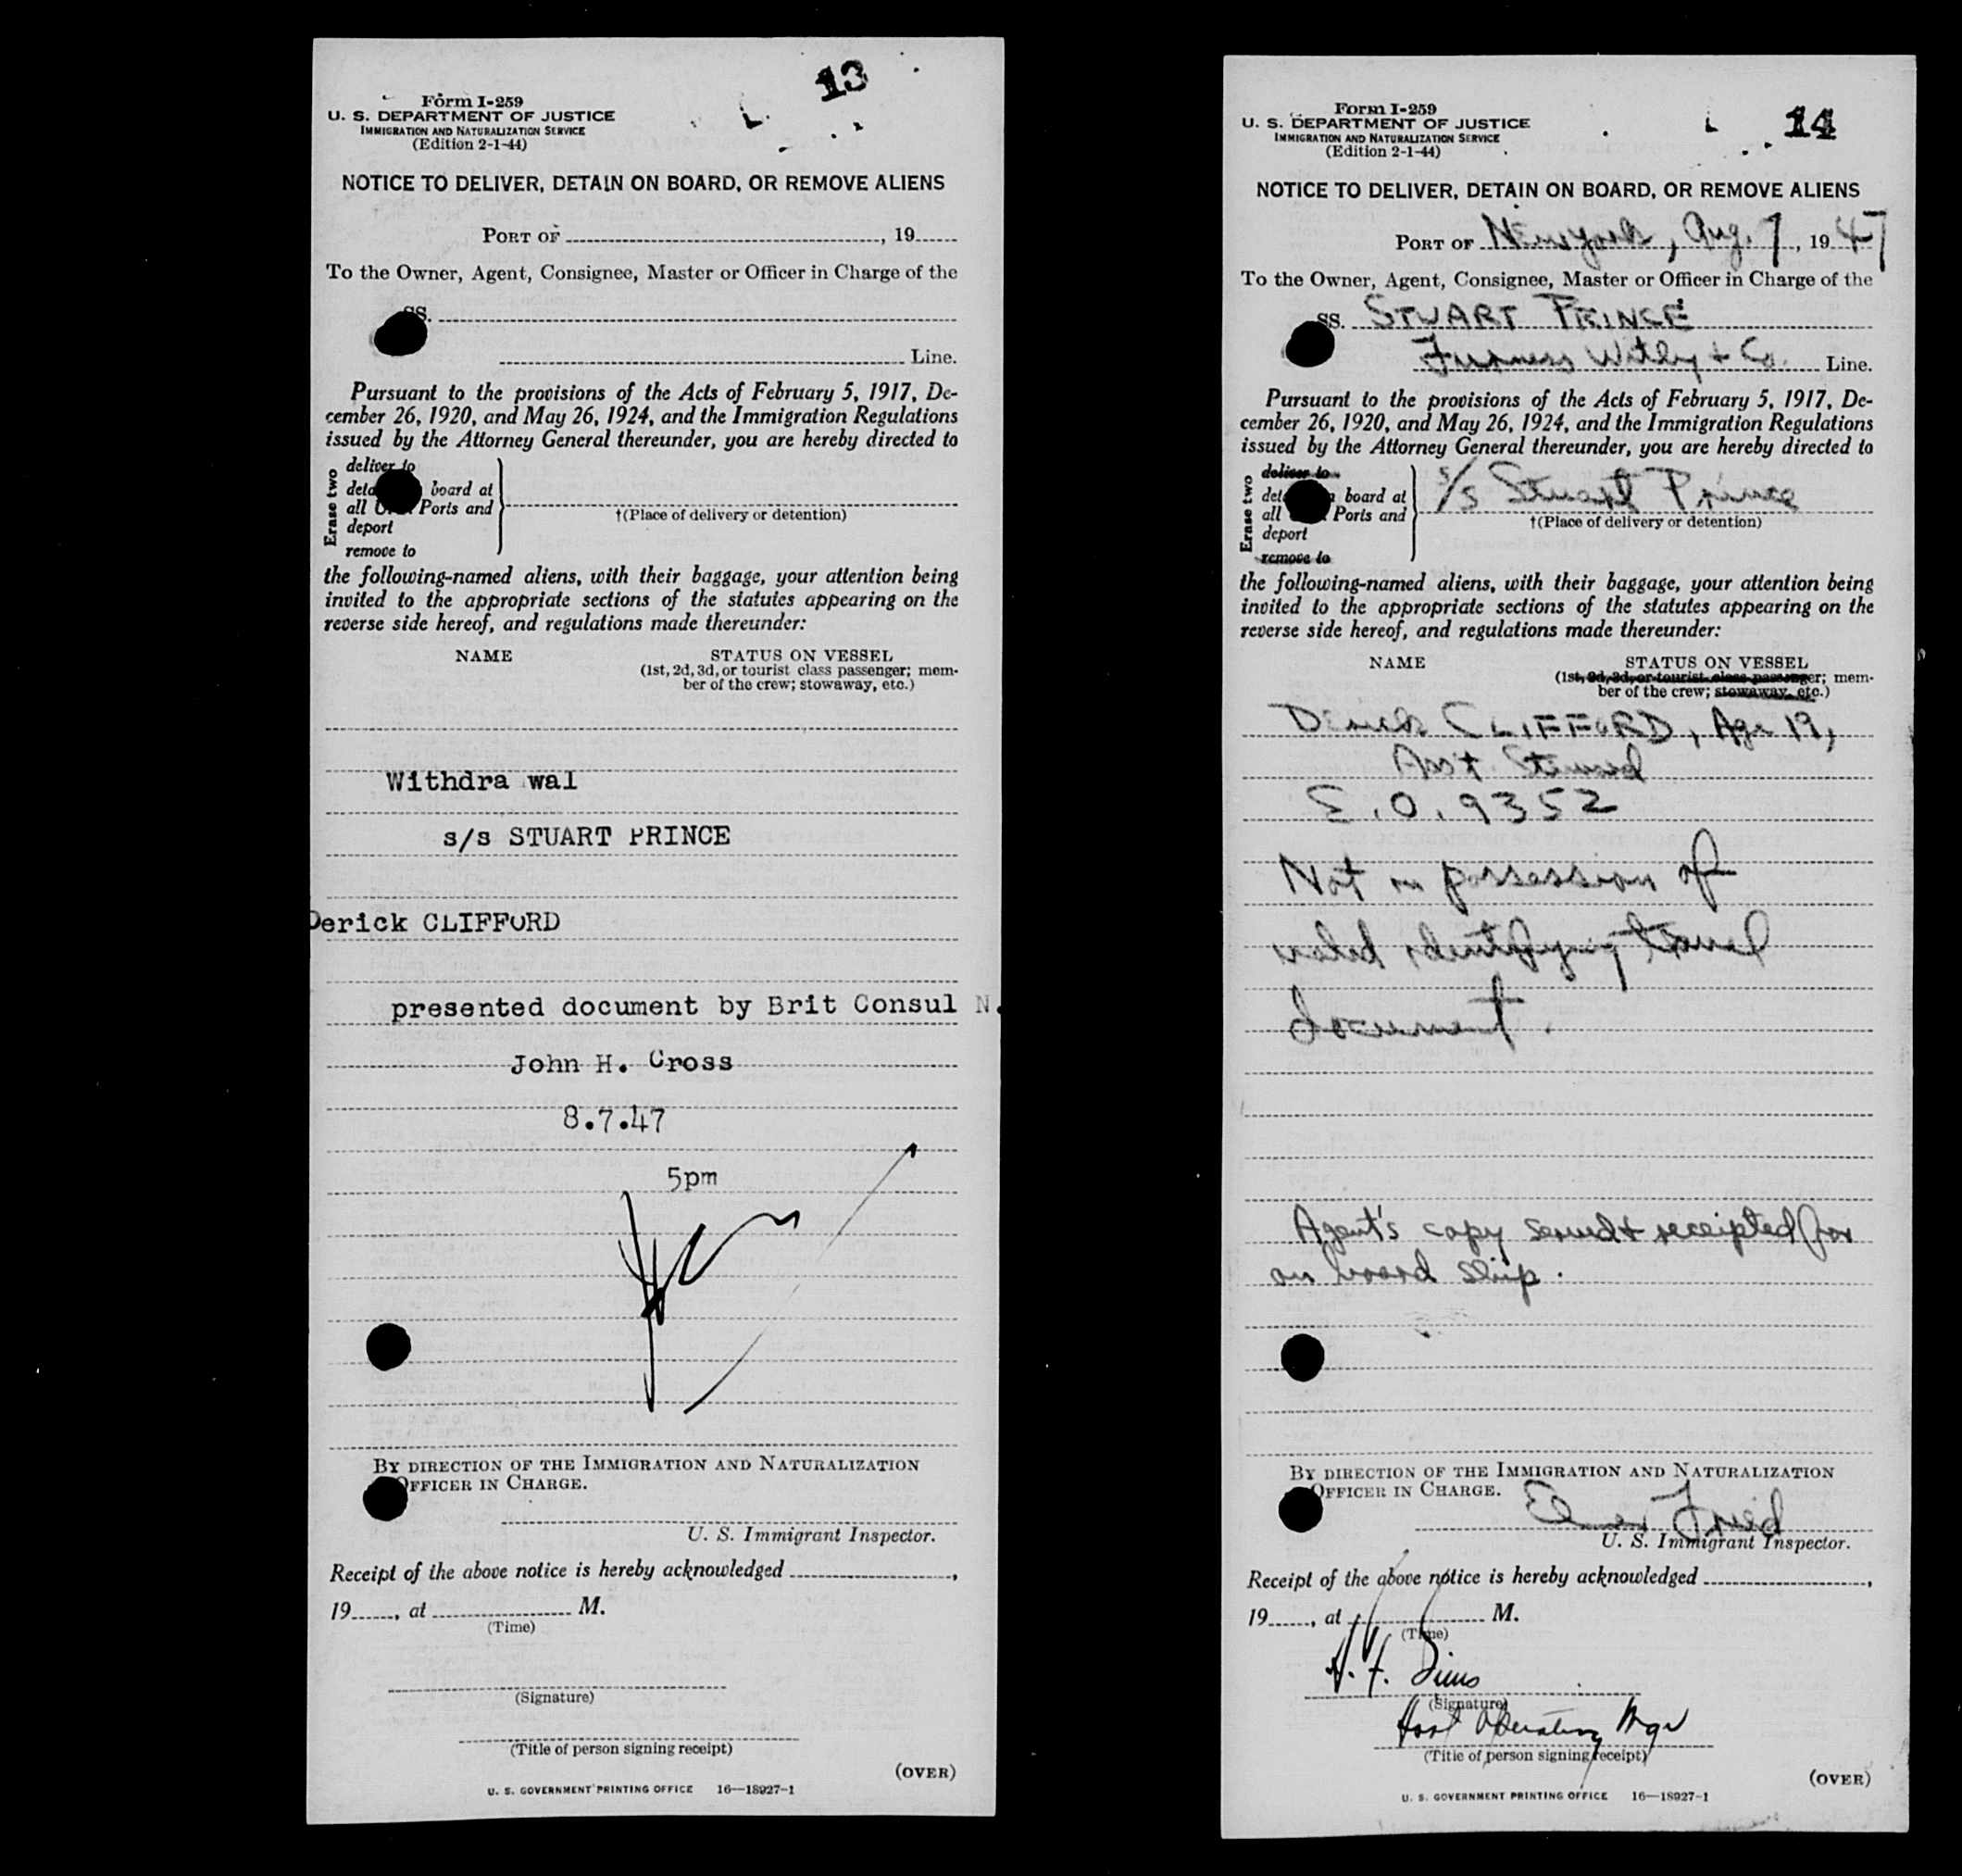 13
Form I-259
U. S. DEPARTMENT OF JUSTICE
IMMIGRATION AND NATURALIZATION SERVICE
(Edition 2-1-44)
NOTICE TO DELIVER, DETAIN ON BOARD, OR REMOVE ALIENS
PORT OF , 19
To the Owner, Agent, Consignee, Master or Officer in Charge of the
SS.
Line.
Pursuant to the provisions of the Acts of February 5, 1917, De-
cember 26, 1920, and May 26, 1924, and the Immigration Regulations
issued by the Attorney General thereunder, you are hereby directed to
Erase two
deliver to
board at
all Ports and
deport
remove to
†(Place of delivery or detention)
the following-named aliens, with their baggage, your attention being
invited to the appropriate sections of the statutes appearing on the
reverse side hereof, and regulations made thereunder:
NAME STATUS ON VESSEL
(1st, 2d, 3d, or tourist class passenger; mem-
ber of the crew; stowaway, etc.)
Withdra wal
s/s STUART PRINCE
Derick CLIFFORD
presented document by Brit Consul N.
John H. Cross
8.7.47
5pm
BY DIRECTION OF THE IMMIGRATION AND NATURALIZATION
OFFICER IN CHARGE.
U. S. Immigrant Inspector.
Receipt of the above notice is hereby acknowledged ,
19 , at M.
(Time)
(Signature)
(Title of person signing receipt)
(OVER)
U. S. GOVERNMENT PRINTING OFFICE 16—18927-1
14
Form I-259
U. S. DEPARTMENT OF JUSTICE
IMMIGRATION AND NATURALIZATION SERVICE
(Edition 2-1-44)
NOTICE TO DELIVER, DETAIN ON BOARD, OR REMOVE ALIENS
PORT OF New York, Aug. 7, 1947
To the Owner, Agent, Consignee, Master or Officer in Charge of the
SS. STUART PRINCE
Furness Withy + Co. Line.
Pursuant to the provisions of the Acts of February 5, 1917, De-
cember 26, 1920, and May 26, 1924, and the Immigration Regulations
issued by the Attorney General thereunder, you are hereby directed to
Erase two
deliver to
board at
all Ports and
deport
remove to
s/s Stuart Prince
†(Place of delivery or detention)
the following-named aliens, with their baggage, your attention being
invited to the appropriate sections of the statutes appearing on the
reverse side hereof, and regulations made thereunder:
NAME STATUS ON VESSEL
(1st, 2d, 3d, or tourist class passenger; mem-
ber of the crew; stowaway, etc.)
Derick CLIFFORD, Age 19,
Ass't Steward
E.O. 9352
Not in possession of
valid identifying travel
document.
Agent's copy served + receipted for
on board ship.
BY DIRECTION OF THE IMMIGRATION AND NATURALIZATION
OFFICER IN CHARGE.
Elmer Fried
U. S. Immigrant Inspector.
Receipt of the above notice is hereby acknowledged ,
19 , at M.
(Time)
H. F. Sims
(Signature)
Asst Operating Mgr
(Title of person signing receipt)
(OVER)
U. S. GOVERNMENT PRINTING OFFICE 16—18927-1